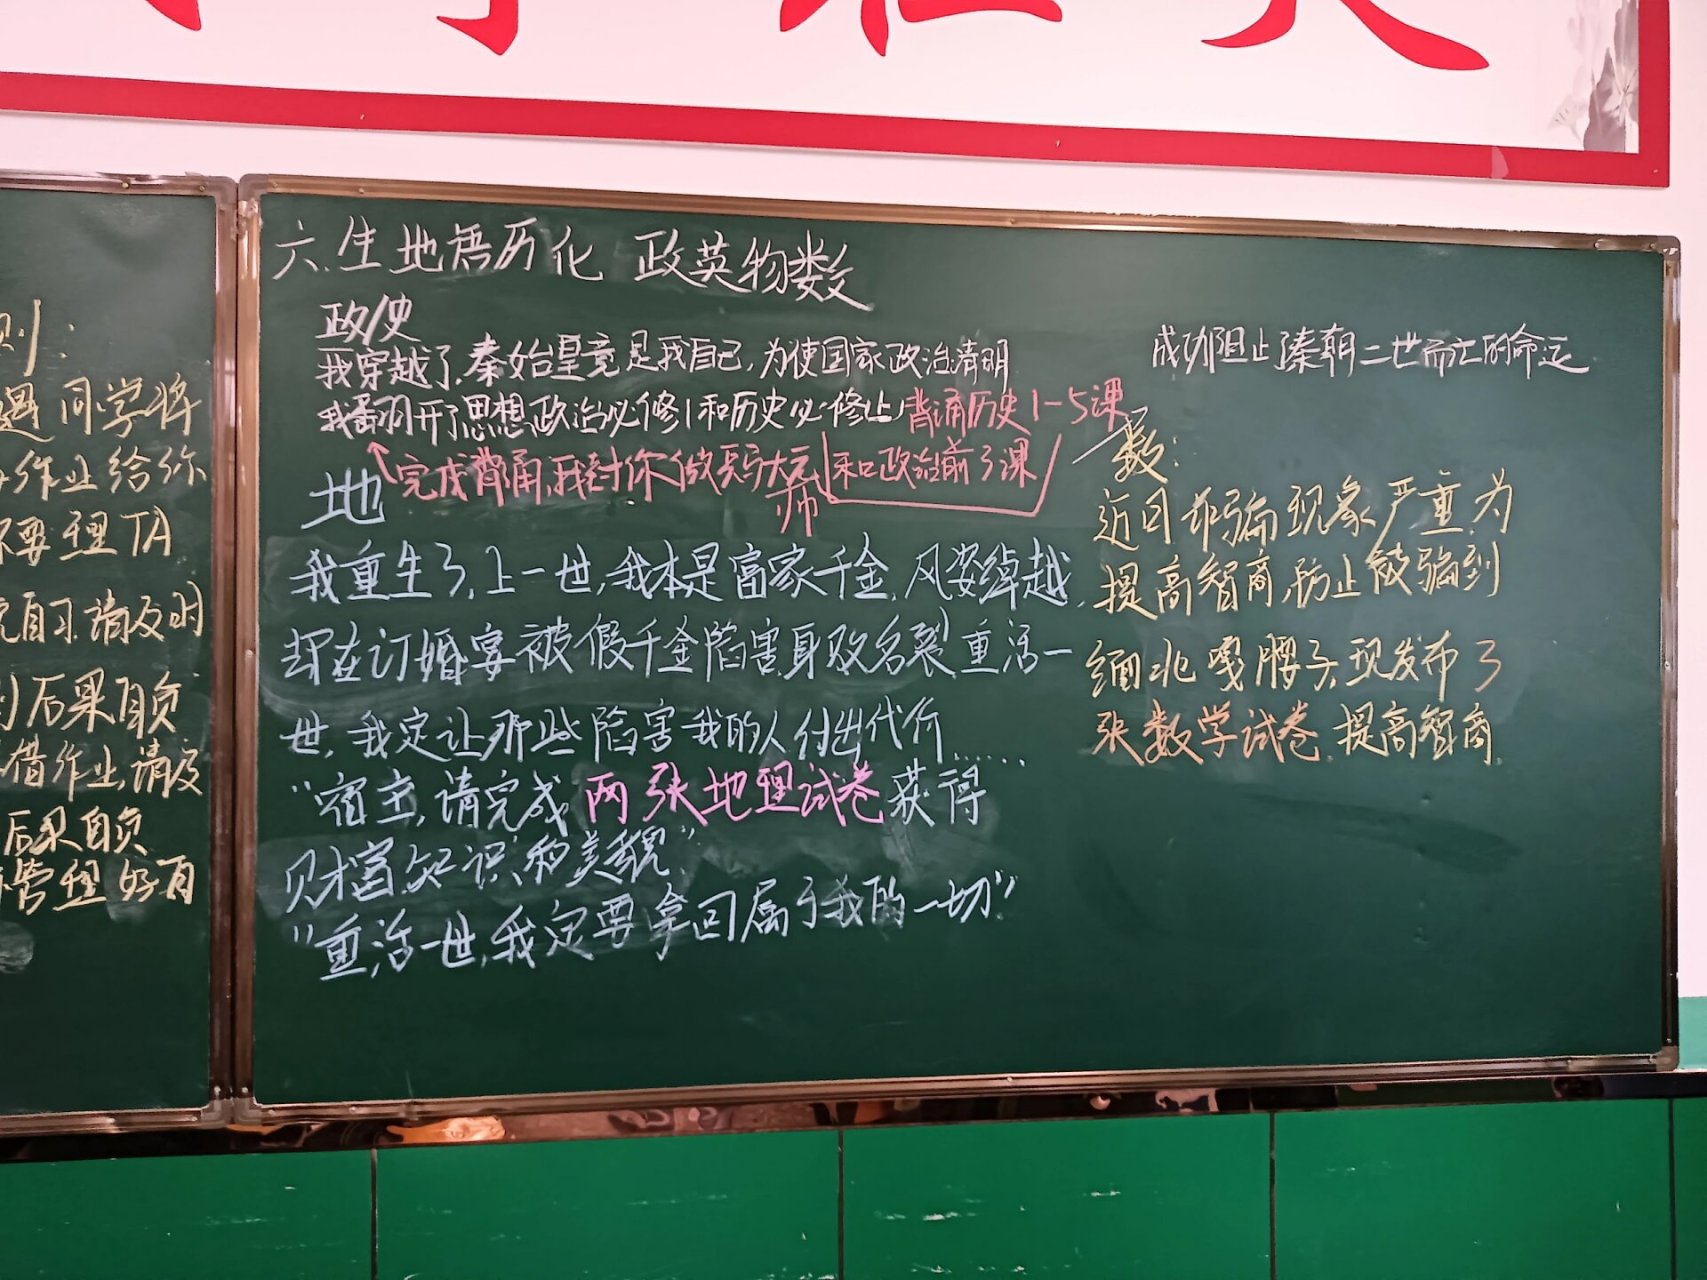 则:
同学将
作业给你
不要理TA
自习.请及时
后果自负
借作业,请及
后果自负
管理好百
六.生地语历化 政英物数
政/史
我穿越了.秦始皇竟是我自己,为使国家政治清明
我翻开了思想政治必修1和历史必修上,背诵历史1-5课
和政治前3课
成功阻止了秦朝二世而亡的命运
完成背诵,我封你做兵马大元帅
地
我重生了,上一世,我本是富家千金,风姿绰越,
却在订婚宴被假千金陷害身败名裂,重活一
世,我定让那些陷害我的人付出代价……
“宿主,请完成两张地理试卷获得
财富,知识和美貌”
“重活一世,我定要拿回属于我的一切”
数:
近日诈骗现象严重.为
提高智商,防止被骗到
缅北嘎腰子,现发布了
张数学试卷.提高智商.